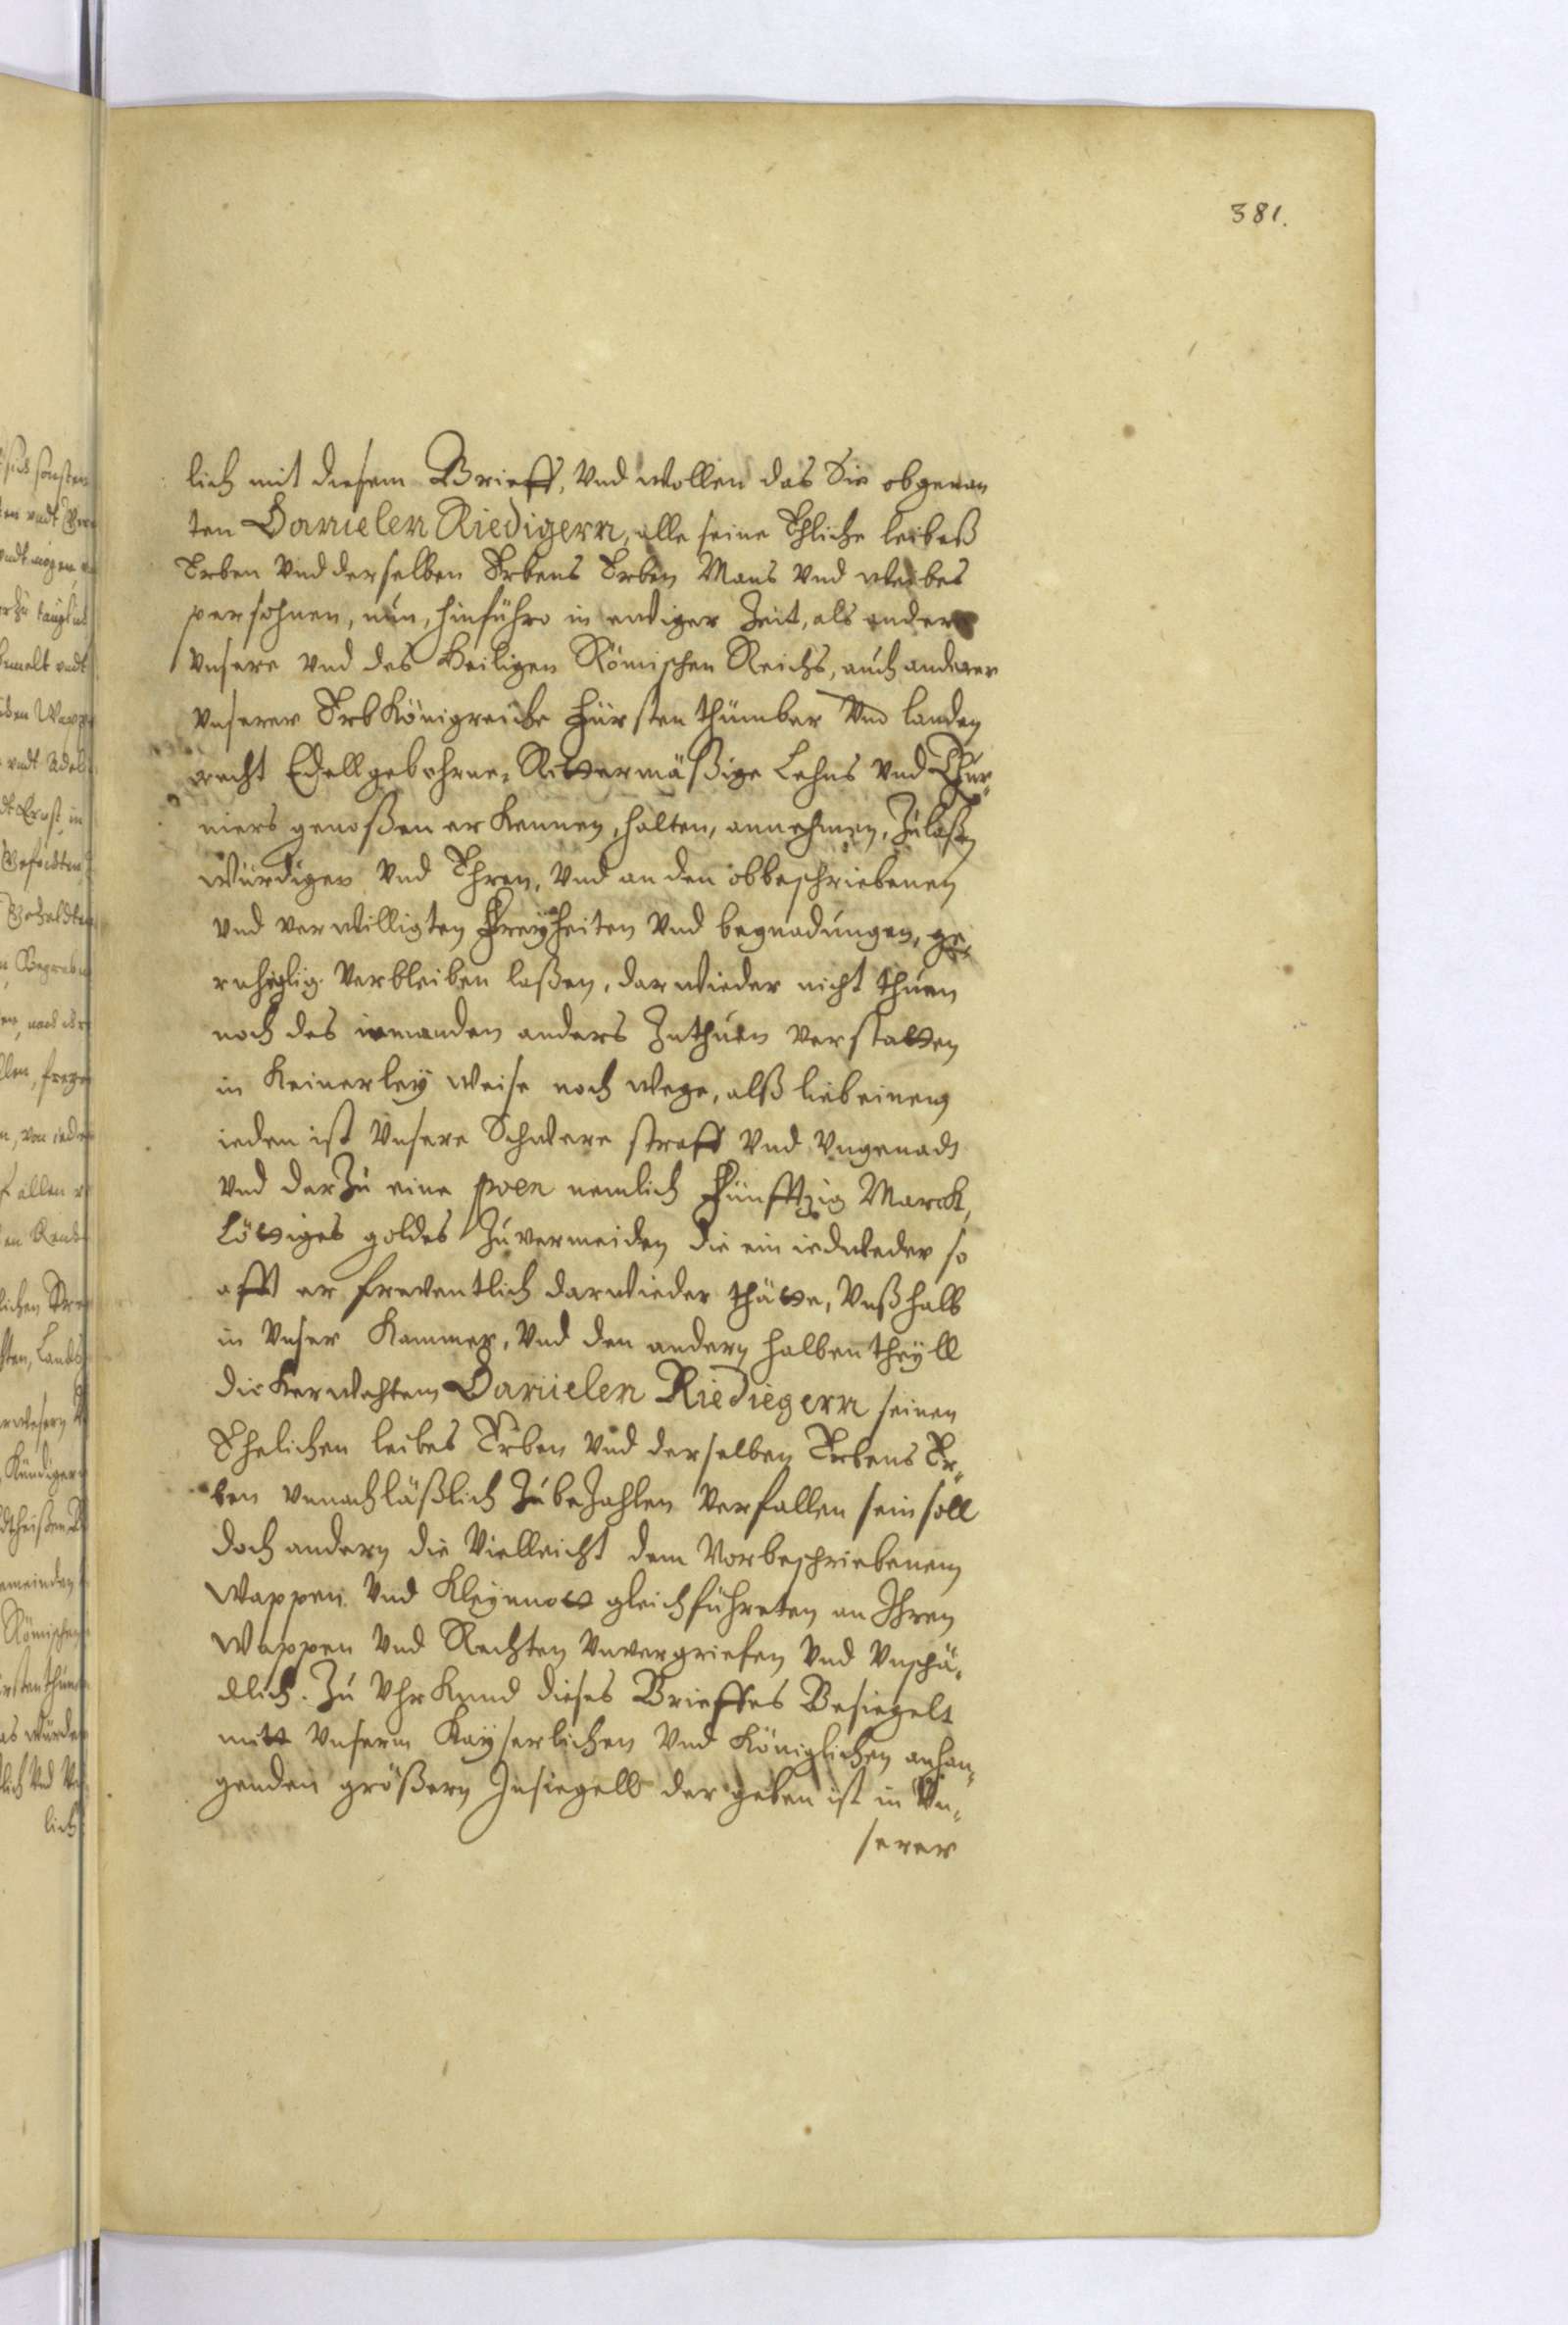 381.
lich mit diesem Brieff, Vnd wollen das Sie obgenan
ten Danielen Riedigern, alle seine Ehliche leibeß
Erben Vnd derselben Erbens Erben Mans Vnd weibes
persohnen, nun, hinführo in ewiger Zeit, als andere
Vnsere Vnd des Heiligen Römischen Reichs, auch anderer
Vnserer Erb Königreiche Fürstenthumber Vnd landen
recht Edellgebohrne, Rittermäßige Lehns Vnd Thur,
niers genoßen er Kennen, halten, annehmen, Zulaßn
würdigen Vnd Ehren, Vnd an den obbeschriebenen
Vnd verwilligten Freyheiten Vnd begnadungen, ge,
ruhiglig Verbleiben laßen, darwieder nicht thuen
noch des iemanden anders Zuthuen verstatten
in Keinerley weise noch wege, alß lieb einem
ieden ist Vnsere Schwere straff Vnd Vngenadt
Vnd darzu eine poen nemlich Fünfftzig Marck,
Löttiges goldes Zuvermeiden die ein iedweder so
offt er freventlich darwieder thätte, Vnß halb
in Vnser Kammer, Vnd den andern halben theyll
dickerwehten Danielen Riediegern seinen
Ehelichen leibes Erben Vnd derselben Erbens Er,
ben Vnnachläßlich Zubezahlen Verfallen sein soll
doch andern die Vielleicht dem Vorbeschriebenem
Wappen Vnd Kleynott gleich führeten an Ihren
Wappen Vnd Rechten Vnvergriefen Vnd Vnschä,
dlich. Zu Vhrkund dieses Brieffes Besiegelt
mitt Vnserm Kayserlichen Vnd Königlichen anhan,
genden größern Insiegell der geben ist in Vn,
serer